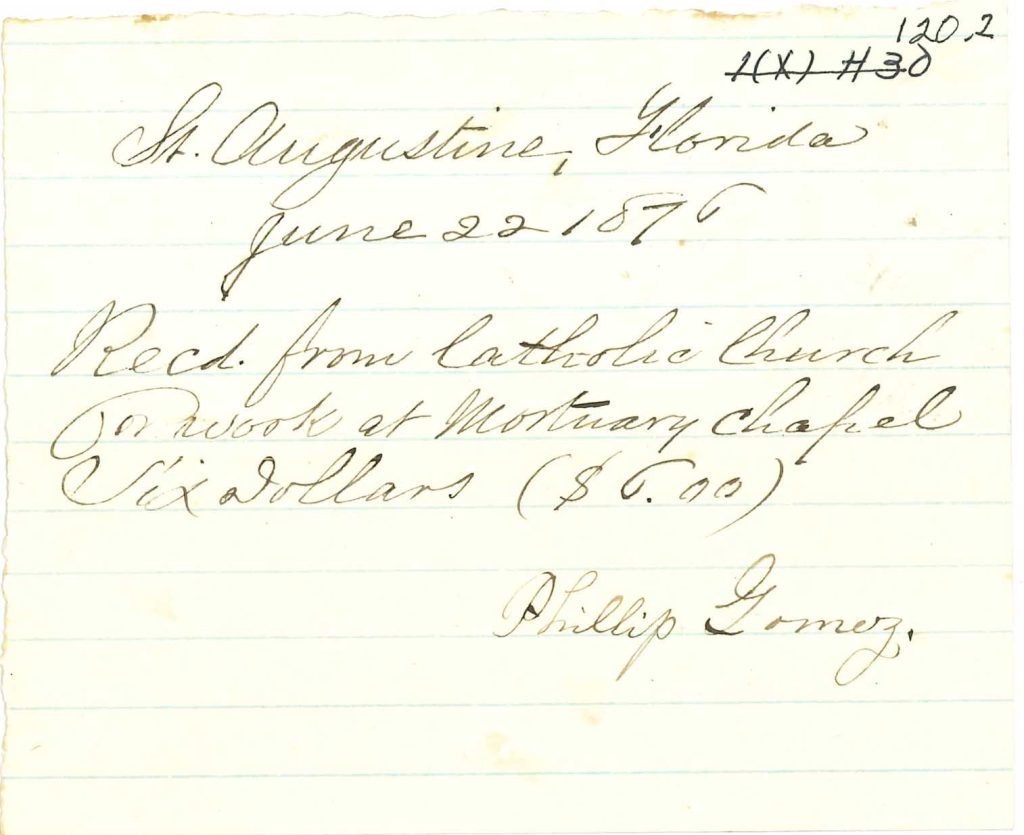 120.2
1(X) #30
St. Augustine, Florida
June 22 1876
Recd. from Catholic Church
For work at Mortuary Chapel
Six Dollars ($6.00)
Phillip Gomez.